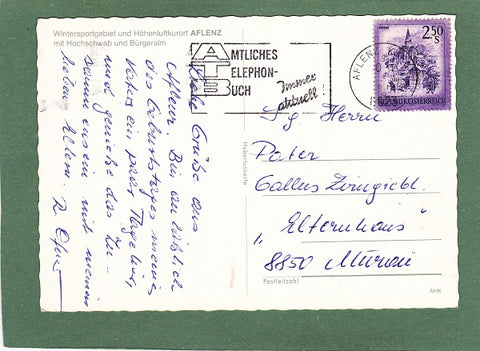 Wintersportgebiet und Höhenluftkurort AFLENZ
mit Hochschwab und Bürgeralm
ATB
AMTLICHES
TELEPHON-
BUCH
Immer
aktuell!
AFLENZ
2.50
S
REPUBLIK ÖSTERREICH
Liebe Grüße aus
Aflenz Bin anläßlich
des Geburtstages meines
Vaters ein paar Tage hier,
und genieße das Zu-
sammensein mit meinen
lieben Eltern.
Hubertuskarte
Sg. Herrn
Pater
Gallus
"Elternhaus"
8850 Murau
Postleitzahl
AHK